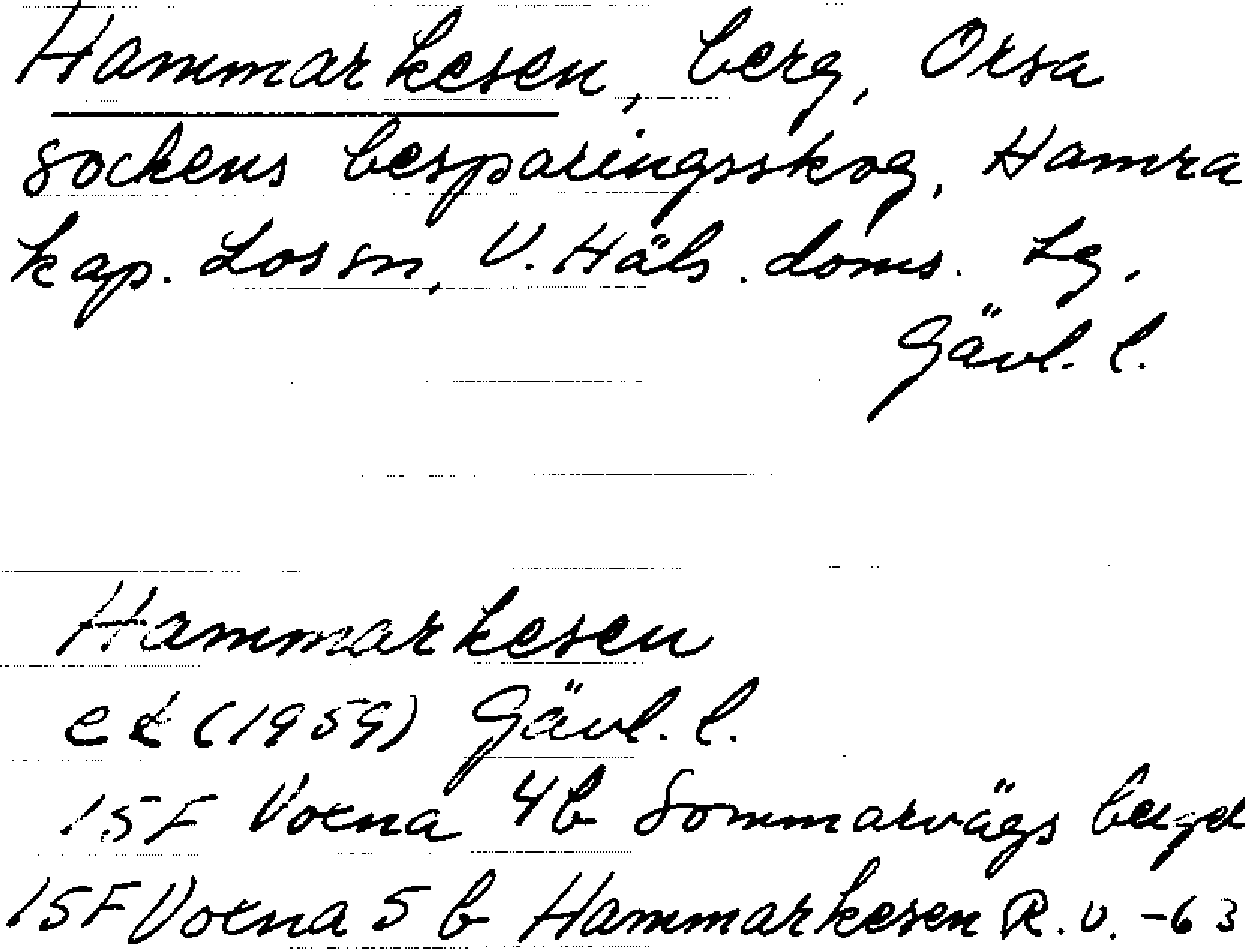 Hammarkesen, berg, Orsa
sockens besparingsskog, Hamra
kap. Los sn, V. Häls. doms. Lg.
Gävl. l.
Hammarkesen
ek (1959) Gävl. l.
15F Voxna 4b Sommarvägs berget
15F Voxna 5b Hammarkesen R.V. -63